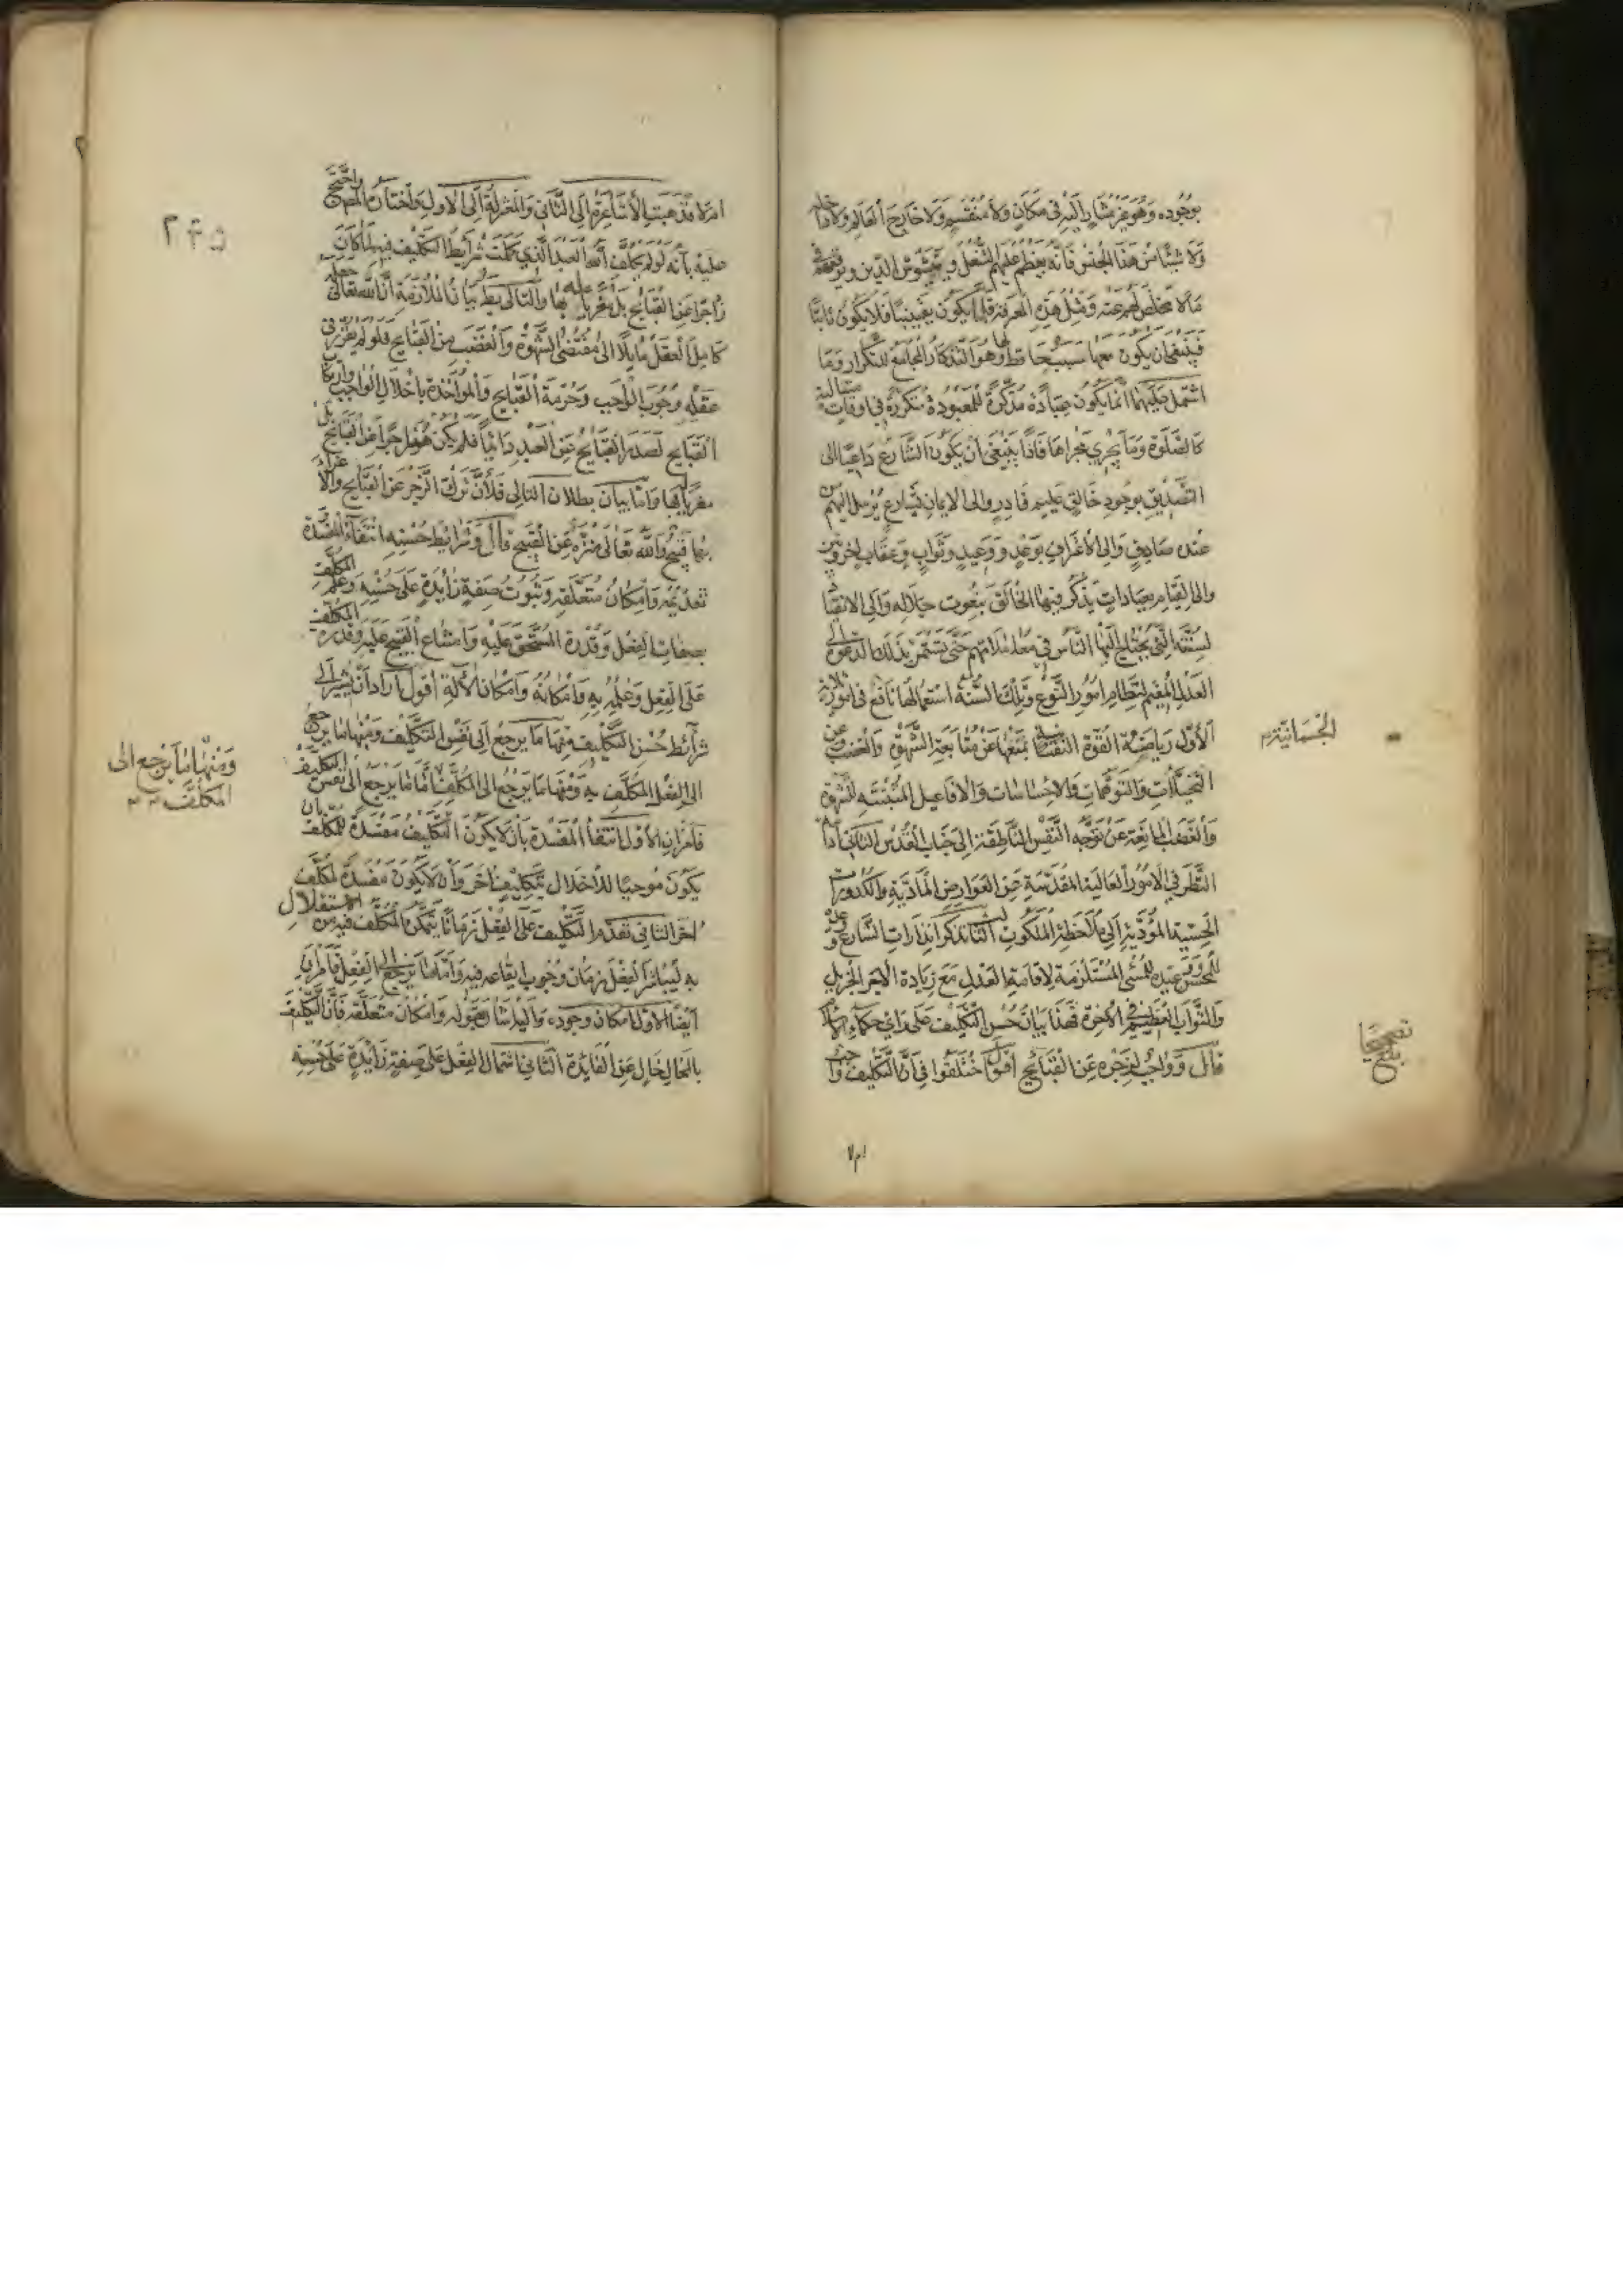 بوجوده وهو غير مشار اليه في مكان ولا منقسم ولا خارج العالم ولا داخله
ولا شيئا من هذا الجنس فانه يعظم عليهم الشغل ويشوش الدين ويوقعهم في
ما لا مخلص لهم عنه ومثل هذه المعرفة قلما يكون يقينيا فلا يكون ثابتا
فينبغي ان يكون معها سبب حافظ لها وهو التذكار الجامع للتكرار وما
اشتمل عليهما انما يكون عبادة مذكرة للمعبود متكررة في اوقات متتالية
كالصلوة وما يجري مجراها فاذا ينبغي ان يكون الشارع داعيا الى
التصديق بوجود خالق عليم قادر والى الايمان بشارع مرسل اليهم من
عنده صادق والى الاعتراف بوعد ووعيد وثواب وعقاب اخرويين
والى القيام بعبادات يذكر فيها الخالق بنعوت جلاله والى الانقياد
لسنته التي يحتاج اليها الناس في معاملاتهم حتى يستمر بذلك الدعوة الى
العدل المقيم لنظام امور النوع وتلك السنة استعمالها نافع في امور ثلاثة
الاول رياضة القوة النفسانية بمنعها عن متابعة الشهوة والغضب وعن
التخيلات والتوهمات والاحساسات والافاعيل المثيرة للشهوة
والغضب المانعة عن توجه النفس الناطقة الى جناب القدس الثاني ادامة
النظر في الامور العالية المقدسة عن العوارض المادية والكدورات
الحسية المؤدية الى ملاحظة الملكوت الثالث تذكر انذارات الشارع ووعده
للمحسن ووعيده للمسئ المستلزمة لاقامة العدل مع زيادة الاجر الجزيل
والثواب العظيم في الاخرة فهذا بيان حسن التكليف على راي حكماء الاسلام
قال وواجب لزجره عن القبائح اقول اختلفوا في ان التكليف واجب
الجسمانية م
امرلا فذهبت الاشاعرة الى الثاني والمعتزلة الى الاول واختاره المص واحتج
عليه بانه لو لم يكلف الله العبد الذي كملت شرايط التكليف فيه لما كان
زاجرا عن القبايح بل مغريا له بها والتالي بط بيان الملازمة ان الله تعالى جعله
كامل العقل مايلا الى مقتضى الشهوة والغضب من القبايح فلو لم يقرر في
عقله وجوب الواجب وحرمة القبايح والمواخذة باخلال الواجب وارتكاب
القبايح لصدر القبايح عن العبد دايما فلم يكن هو زاجرا عن القبايح بل
مغريا بها واما بيان بطلان التالي فلان ترك الزجر عن القبايح والاغراء
بها قبيح والله تعالى منزه عن القبيح قال وشرايط حسنه انتفاء المفسدة
تقدمه وامكان متعلقه وثبوت صفة زايدة على حسنه وعلم المكلف
بصفات الفعل وقدرة المستحق عليه وامتناع القبيح عليه وقدرة المكلف
على الفعل وعلمه به وامكانه وامكان الالة اقول اراد ان يشير الى
شرائط حسن التكليف منها ما يرجع الى نفس التكليف ومنها ما يرجع
الى الفعل المكلف به ومنها ما يرجع الى المكلف اما ما يرجع الى نفس التكليف
فامران الاول انتفاء المفسدة بان لا يكون التكليف مفسدة للمكلف بان
يكون موجبا للاخلال بتكليف اخر وان لا يكون مفسدة لمكلف
اخر الثاني تقدم التكليف على الفعل زمانا يتمكن المكلف فيه من الاستقلال
به ليباشر الفعل زمان وجوب ايقاعه فيه واما ما يرجع الى الفعل فامران
ايضا الاول امكان وجوده واليه اشار بقوله وامكان متعلقه فان التكليف
بالمحال خال عن الفايدة الثاني اشتمال الفعل على صفة زايدة على حسنه
ومنها ما يرجع الى
المكلف